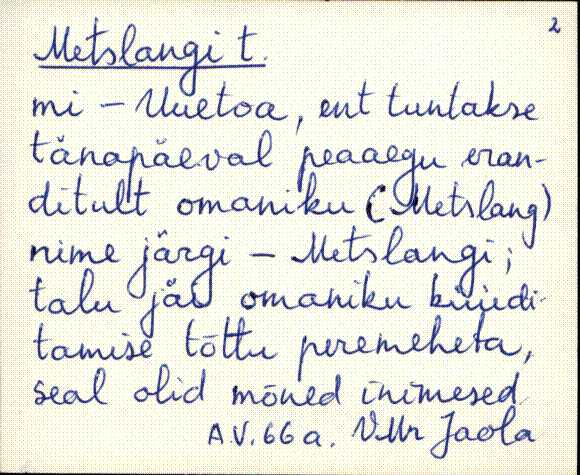 2
Metslangi t.
mi - Uuetoa, ent tuntakse
tänapäeval peaaegu eran-
ditult omaniku (Metslang)
nime järgi - Metslangi;
talu jäi omaniku küüdi-
tamise tõttu peremeheta,
seal olid mõned inimesed
A.V. 66 a. VMr Jaola